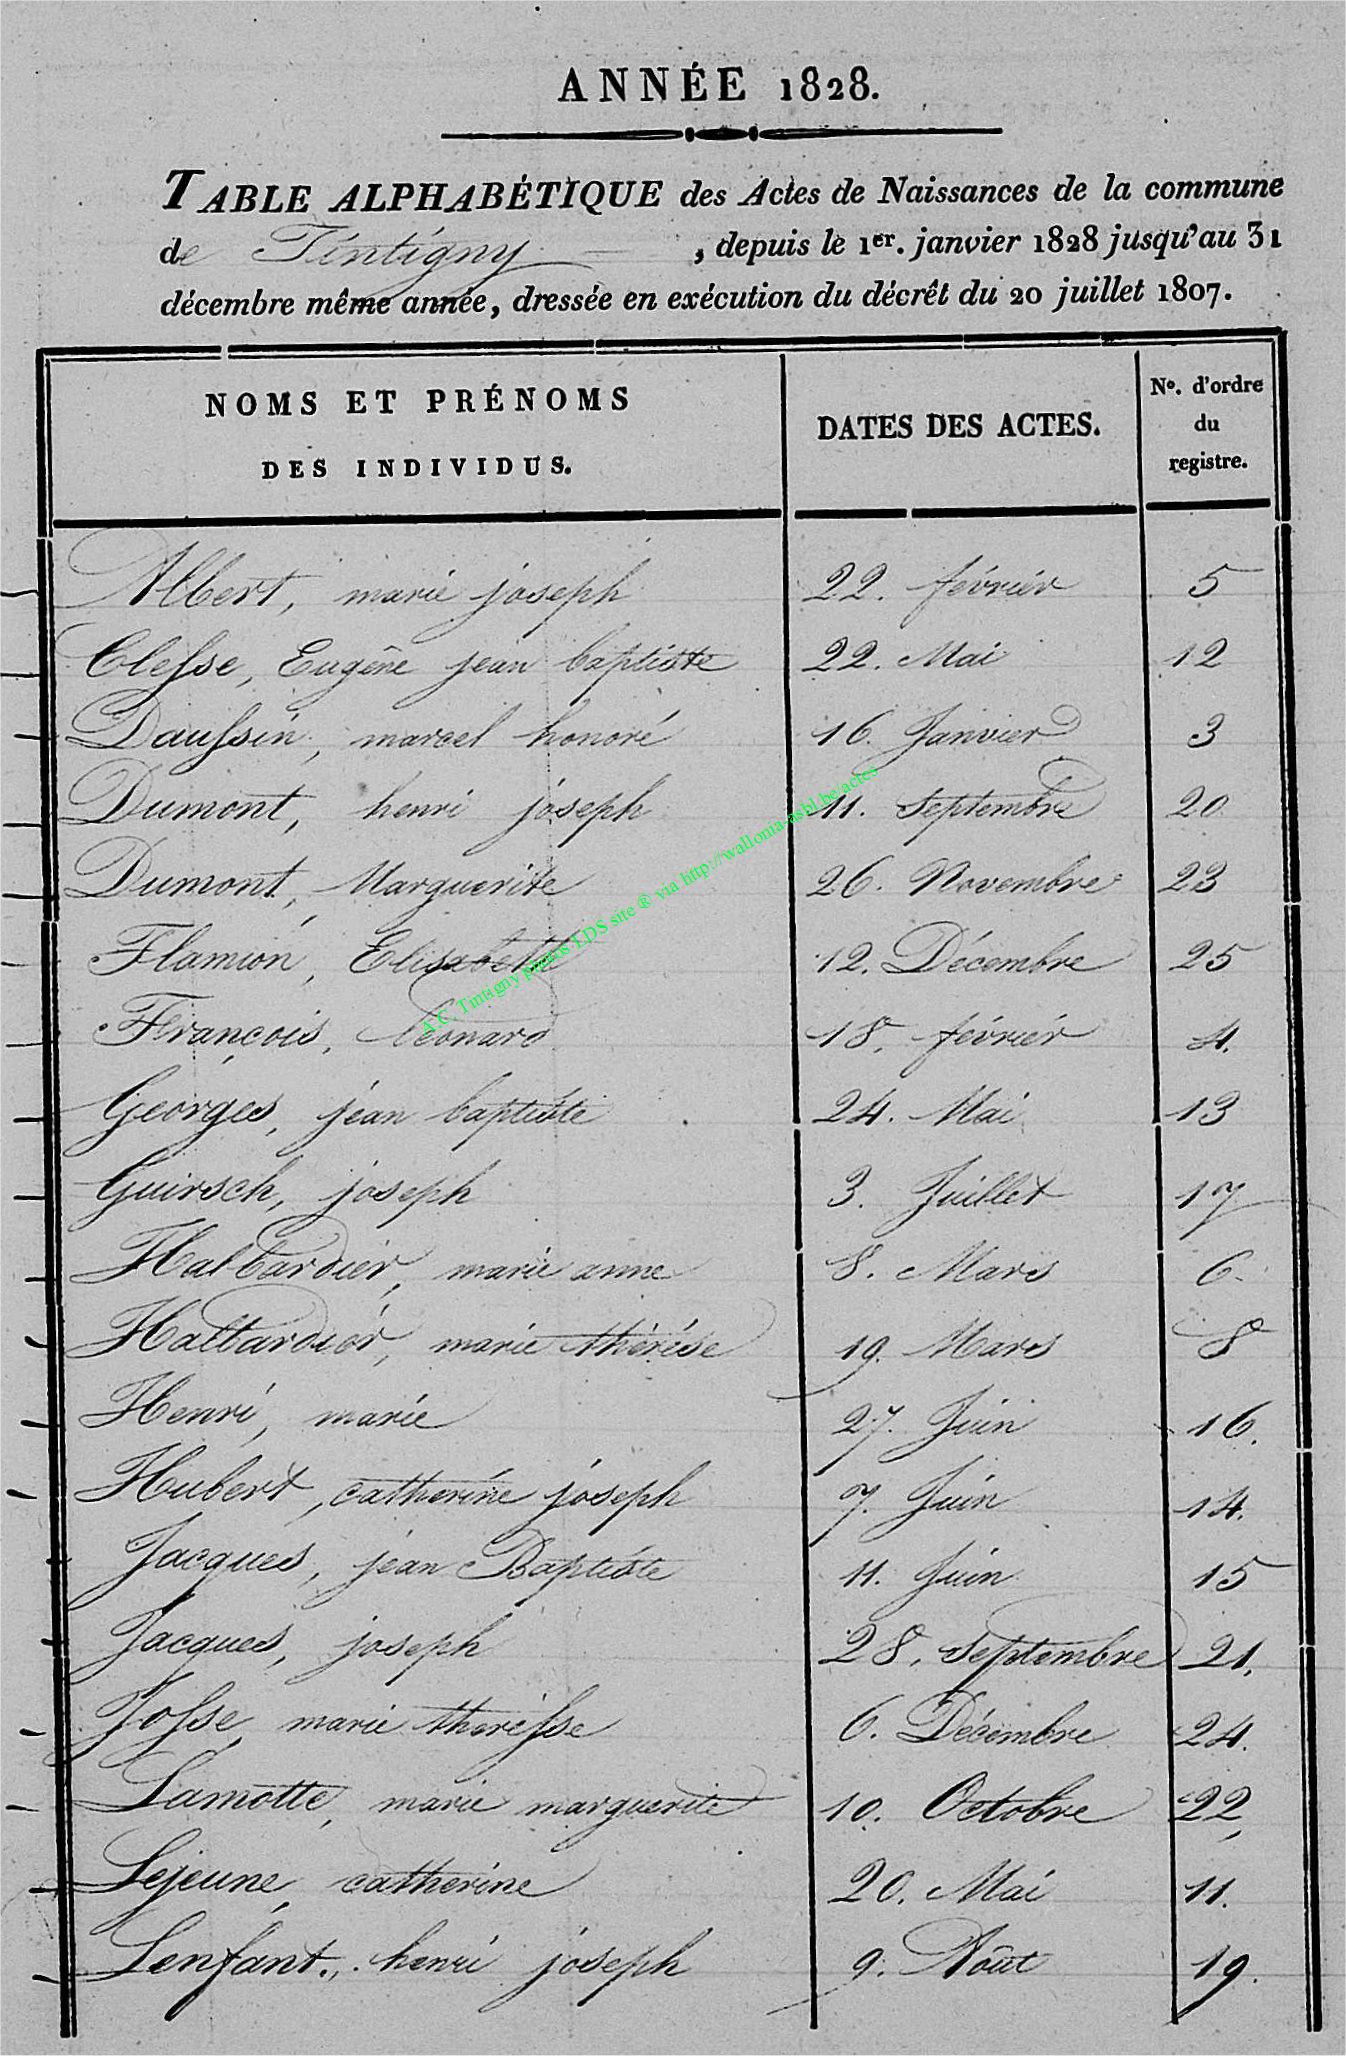 ANNÉE 1828.
TABLE ALPHABÉTIQUE des Actes de Naissances de la commune
de Tintigny, depuis le 1er. janvier 1828 jusqu'au 31
décembre même année, dressée en exécution du décrêt du 20 juillet 1807.
NOMS ET PRÉNOMS
DES INDIVIDUS.
DATES DES ACTES.
No. d'ordre
du
registre.
Albert, marie joseph 22. février 5
Clesse, Eugêne jean baptiste 22. Mai 12
Daussin, marcel honoré 16. Janvier 3
Dumont, henri joseph 11. Septembre 20
Dumont, Marguerite 26. Novembre 23
Flamion, Elisabeth 12. Décembre 25
François, léonard 18. février 4.
Georges, jean baptiste 24. Mai 13
Guirsch, joseph 3. Juillet 17
Halbardier, marie anne 8. Mars 6.
Halbardier, marie thérése 19. Mars 8
Henri, marie 27. Juin 16.
Hubert, catherine joseph 7. Juin 14.
Jacques, jean Baptiste 11. Juin 15
Jacques, joseph 28. Septembre 21.
Josse, marie theresse 6. Décembre 24.
Lamotte, marie marguerite 10. Octobre 22,
Lejeune, catherine 20. Mai 11.
Lenfant, henri joseph 9. Août 19.
A.C. Tintigny photos LDS site ® via http://wallonia-asbl.be/actes